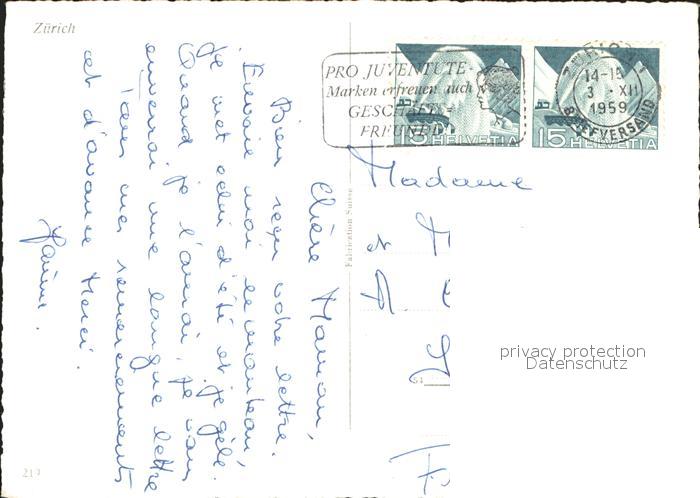 Zürich
PRO JUVENTUTE-
Marken erfreuen auch
GESCHÄFTS-
FREUNDE
15 HELVETIA
15 HELVETIA
14-15
3.-XII
1959
BRIEFVERSAND
Chère Maman,
Bien reçu votre lettre.
Envoie moi le manteau,
je met celui d'été et je gèle.
Quand je l'aurai, je vous
enverrai une longue lettre
avec mes remerciements
et d'avance Merci.
Fabrication Suisse
Madame
et M
privacy protection
Datenschutz
219